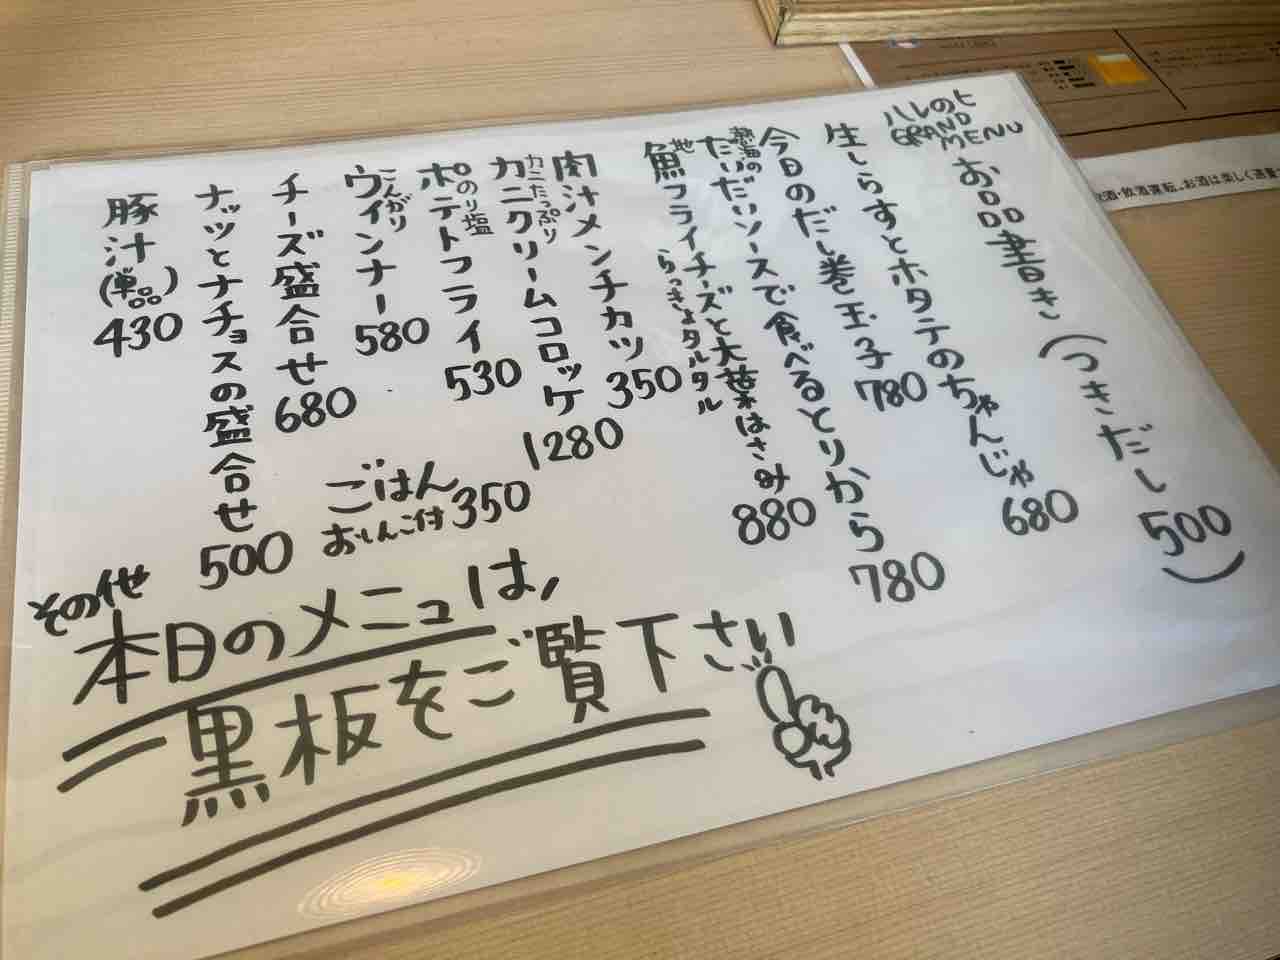 ハレのヒ
GRAND
MENU
お品書き(つきだし500)
生しらすとホタテのちゃんじゃ 680
今日のだし巻玉子 780
熱海の
だいだいソースで食べるとりから 780
地
魚フライチーズと大葉はさみ 880
らっきょタルタル
肉汁メンチカツ 350
カニたっぷり
カニクリームコロッケ 1280
のり塩
ポテトフライ 530
こんがり
ウインナー 580
チーズ盛合せ 680
ナッツとナチョスの盛合せ 500
豚汁(単品) 430
ごはん
おしんこ付 350
その他
本日のメニューは、
黒板をご覧下さい
飲酒運転。お酒は楽しく適量